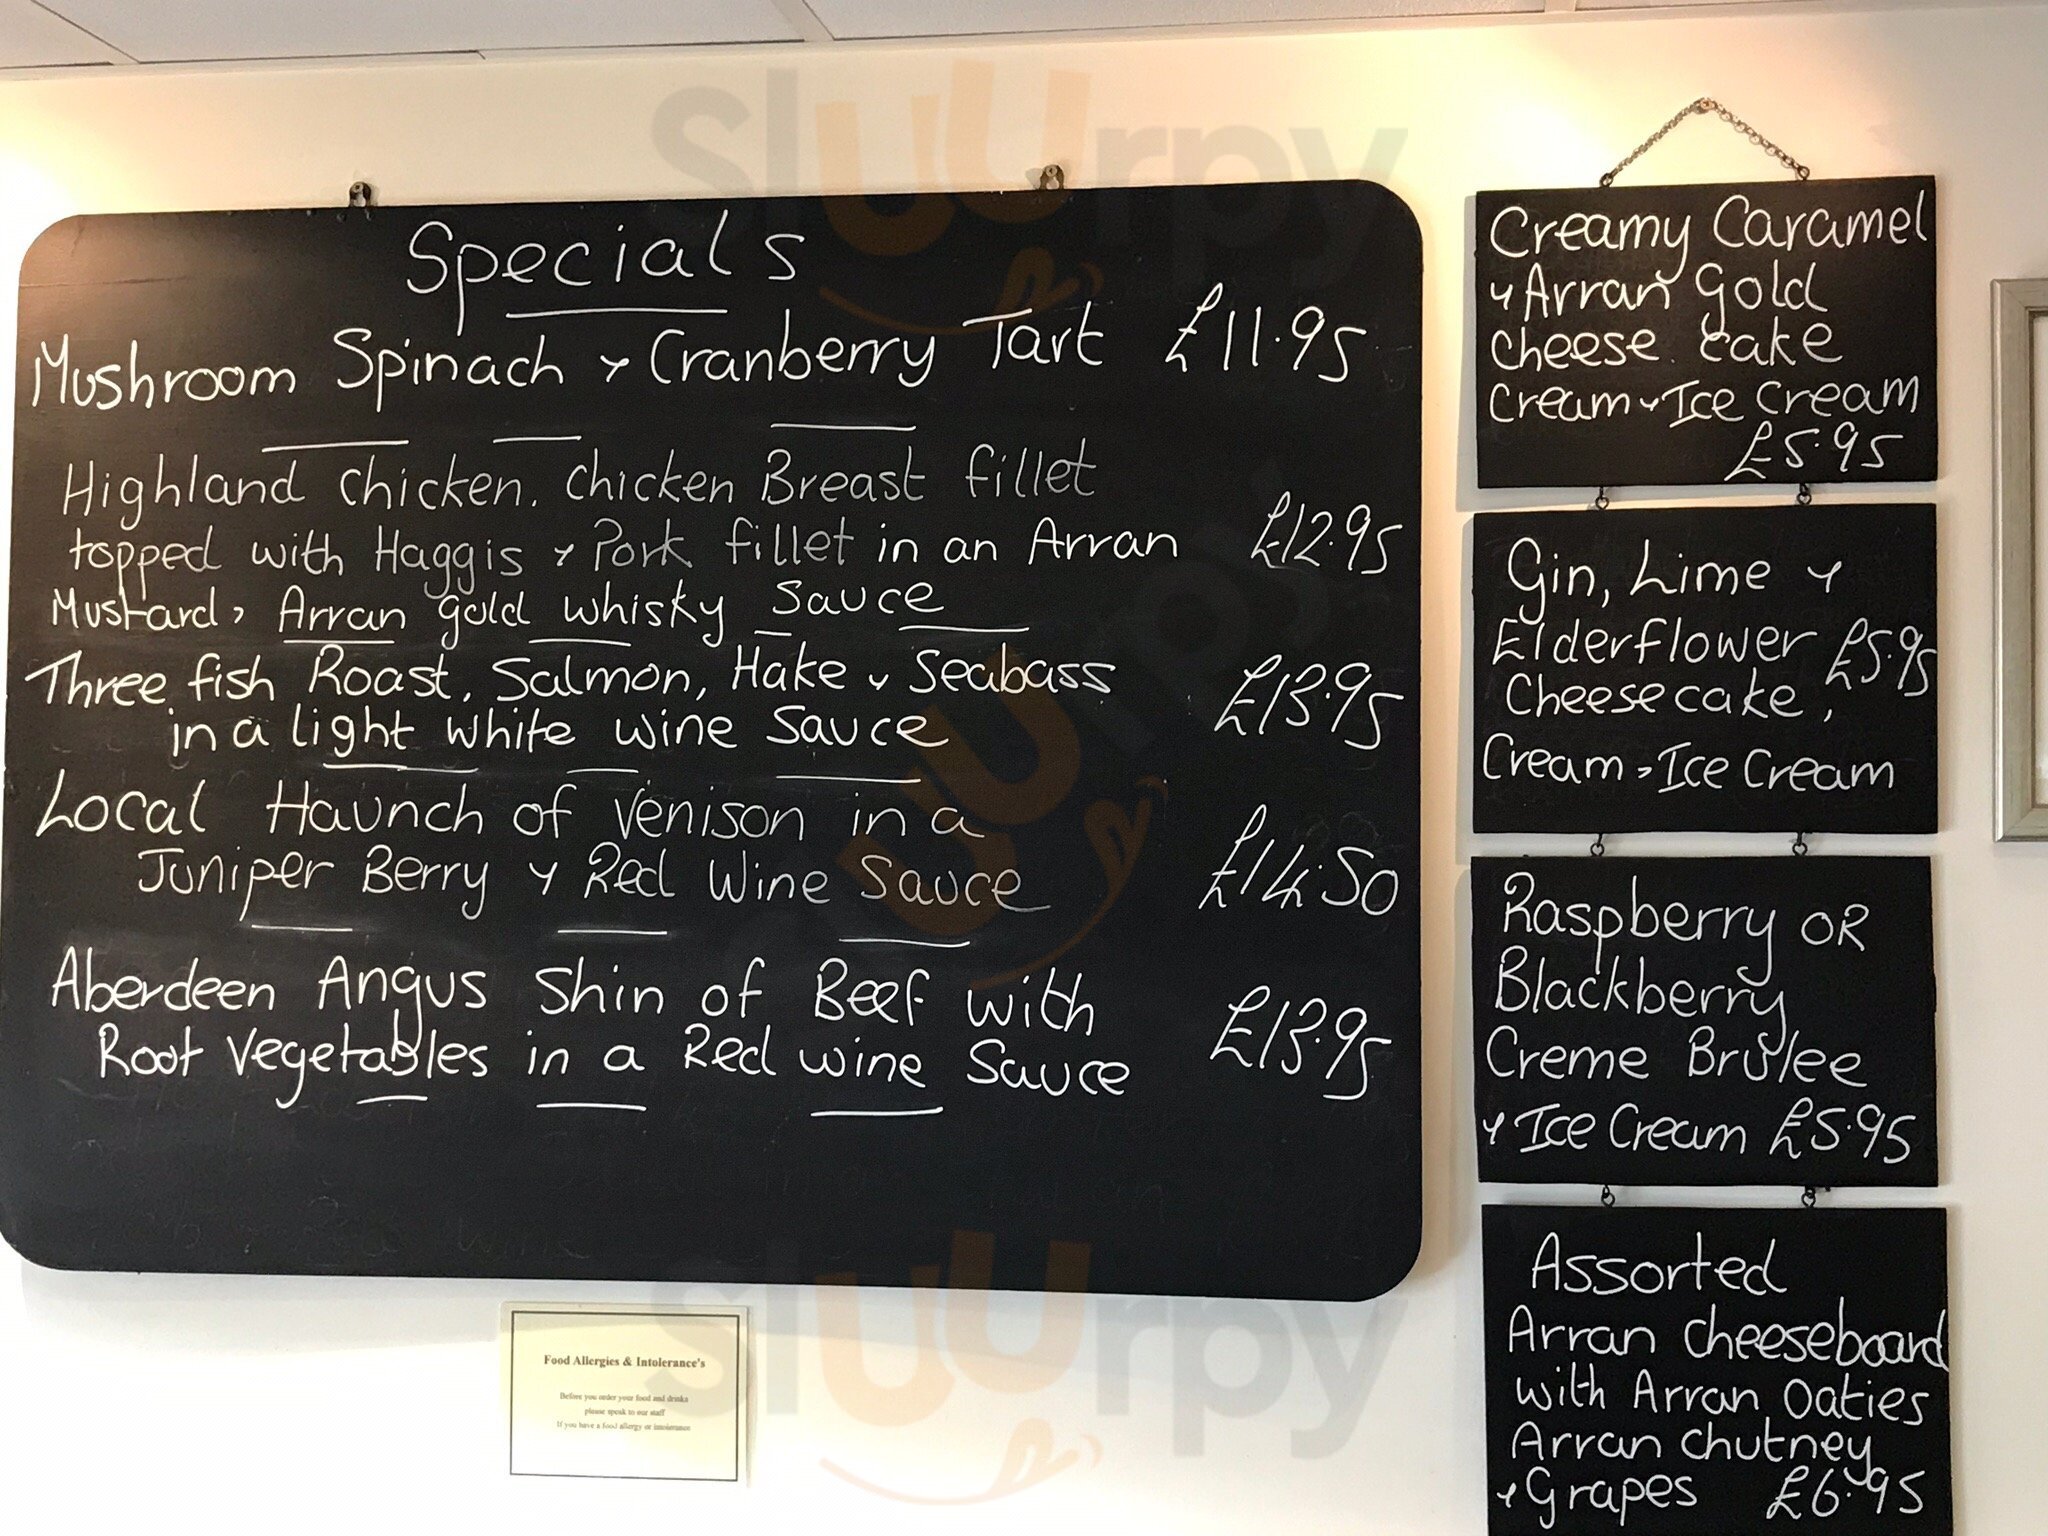 Specials
Mushroom Spinach & Cranberry Tart £11.95
Highland Chicken. Chicken Breast fillet
topped with Haggis & Pork fillet in an Arran £12.95
Mustard, Arran gold whisky Sauce
Three fish Roast, Salmon, Hake & Seabass £13.95
in a light white wine Sauce
Local Haunch of Venison in a
Juniper Berry & Red Wine Sauce £14.50
Aberdeen Angus Shin of Beef with £13.95
Root Vegetables in a Red wine Sauce
Food Allergies & Intolerance's
Before you order your food and drinks
please speak to our staff
If you have a food allergy or intolerance
Creamy Caramel
& Arran Gold
cheese cake
Cream & Ice cream
£5.95
Gin, Lime &
Elderflower £5.95
Cheesecake,
Cream, Ice Cream
Raspberry OR
Blackberry
Creme Brulee
& Ice Cream £5.95
Assorted
Arran cheeseboard
with Arran Oaties
Arran chutney
& Grapes £6.95
Sluurpy
Sluurpy
Sluurpy